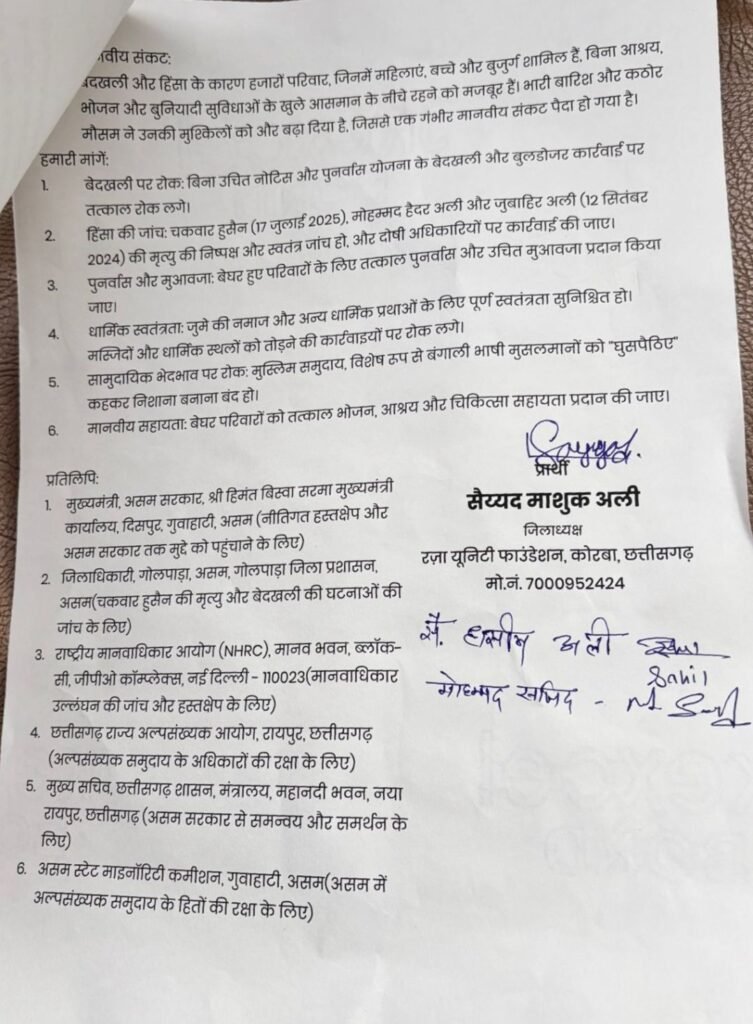 नवीय संकट:
बेदखली और हिंसा के कारण हजारों परिवार, जिनमें महिलाएं, बच्चे और बुजुर्ग शामिल हैं, बिना आश्रय,
भोजन और बुनियादी सुविधाओं के खुले आसमान के नीचे रहने को मजबूर हैं। भारी बारिश और कठोर
मौसम ने उनकी मुश्किलों को और बढ़ा दिया है, जिससे एक गंभीर मानवीय संकट पैदा हो गया है।
हमारी मांगें:
1. बेदखली पर रोक: बिना उचित नोटिस और पुनर्वास योजना के बेदखली और बुलडोजर कार्रवाई पर
तत्काल रोक लगे।
2. हिंसा की जांच: चकवार हुसैन (17 जुलाई 2025), मोहम्मद हैदर अली और जुबाहिर अली (12 सितंबर
2024) की मृत्यु की निष्पक्ष और स्वतंत्र जांच हो, और दोषी अधिकारियों पर कार्रवाई की जाए।
3. पुनर्वास और मुआवजा: बेघर हुए परिवारों के लिए तत्काल पुनर्वास और उचित मुआवजा प्रदान किया
जाए।
4. धार्मिक स्वतंत्रता: जुमे की नमाज और अन्य धार्मिक प्रथाओं के लिए पूर्ण स्वतंत्रता सुनिश्चित हो।
मस्जिदों और धार्मिक स्थलों को तोड़ने की कार्रवाइयों पर रोक लगे।
5. सामुदायिक भेदभाव पर रोक: मुस्लिम समुदाय, विशेष रूप से बंगाली भाषी मुसलमानों को "घुसपैठिए"
कहकर निशाना बनाना बंद हो।
6. मानवीय सहायता: बेघर परिवारों को तत्काल भोजन, आश्रय और चिकित्सा सहायता प्रदान की जाए।
प्रार्थी
सैय्यद माशुक अली
जिलाध्यक्ष
रज़ा यूनिटी फाउंडेशन, कोरबा, छत्तीसगढ़
मो.नं. 7000952424
सै. हासीन अली
Sahil
मोहम्मद साजिद -
प्रतिलिपि:
1. मुख्यमंत्री, असम सरकार, श्री हिमंत बिस्वा सरमा मुख्यमंत्री
कार्यालय, दिसपुर, गुवाहाटी, असम (नीतिगत हस्तक्षेप और
असम सरकार तक मुद्दे को पहुंचाने के लिए)
2. जिलाधिकारी, गोलपाड़ा, असम, गोलपाड़ा जिला प्रशासन,
असम(चकवार हुसैन की मृत्यु और बेदखली की घटनाओं की
जांच के लिए)
3. राष्ट्रीय मानवाधिकार आयोग (NHRC), मानव भवन, ब्लॉक-
सी, जीपीओ कॉम्प्लेक्स, नई दिल्ली - 110023(मानवाधिकार
उल्लंघन की जांच और हस्तक्षेप के लिए)
4. छत्तीसगढ़ राज्य अल्पसंख्यक आयोग, रायपुर, छत्तीसगढ़
(अल्पसंख्यक समुदाय के अधिकारों की रक्षा के लिए)
5. मुख्य सचिव, छत्तीसगढ़ शासन, मंत्रालय, महानदी भवन, नया
रायपुर, छत्तीसगढ़ (असम सरकार से समन्वय और समर्थन के
लिए)
6. असम स्टेट माइनॉरिटी कमीशन, गुवाहाटी, असम(असम में
अल्पसंख्यक समुदाय के हितों की रक्षा के लिए)